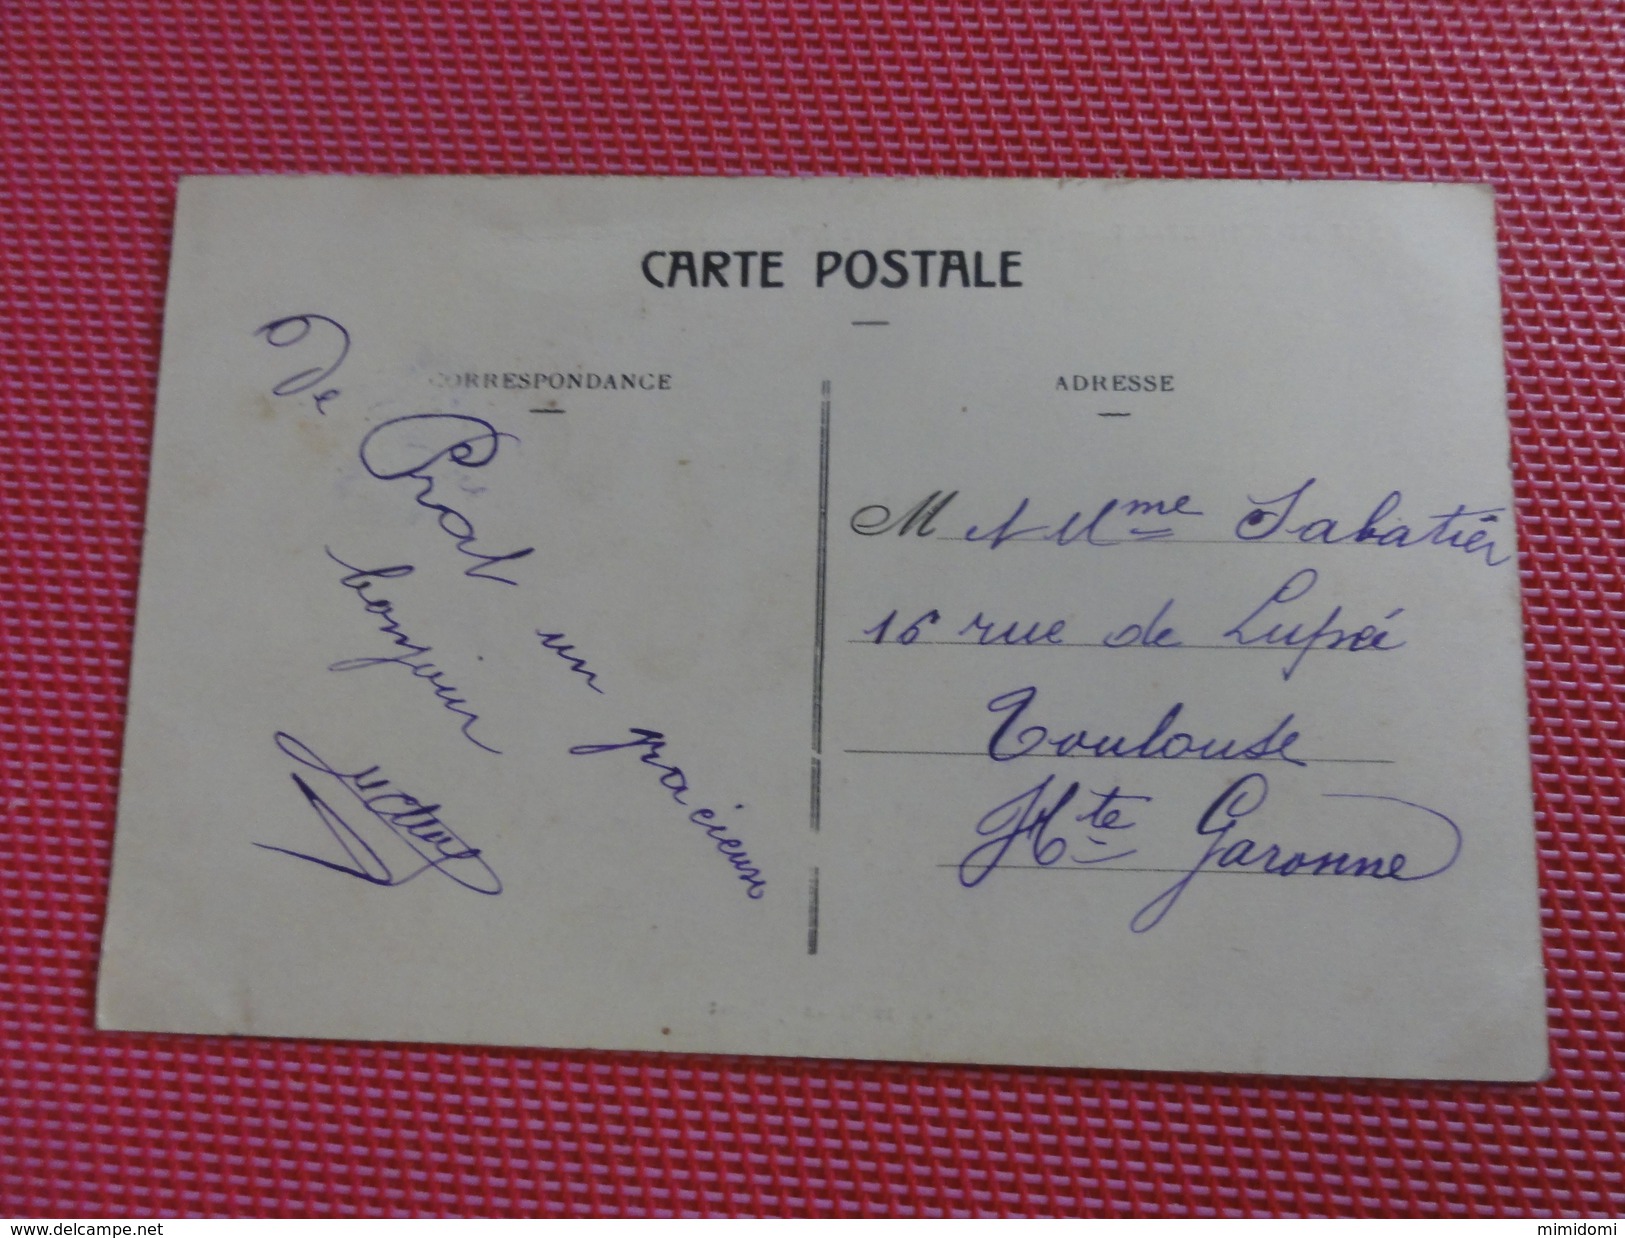 CARTE POSTALE
CORRESPONDANCE
De Prat un gracieux
bonjour
ADRESSE
M et Mme Sabatier
16 rue de Lupé
Toulouse
Hte Garonne
www.delcampe.net
mimidomi